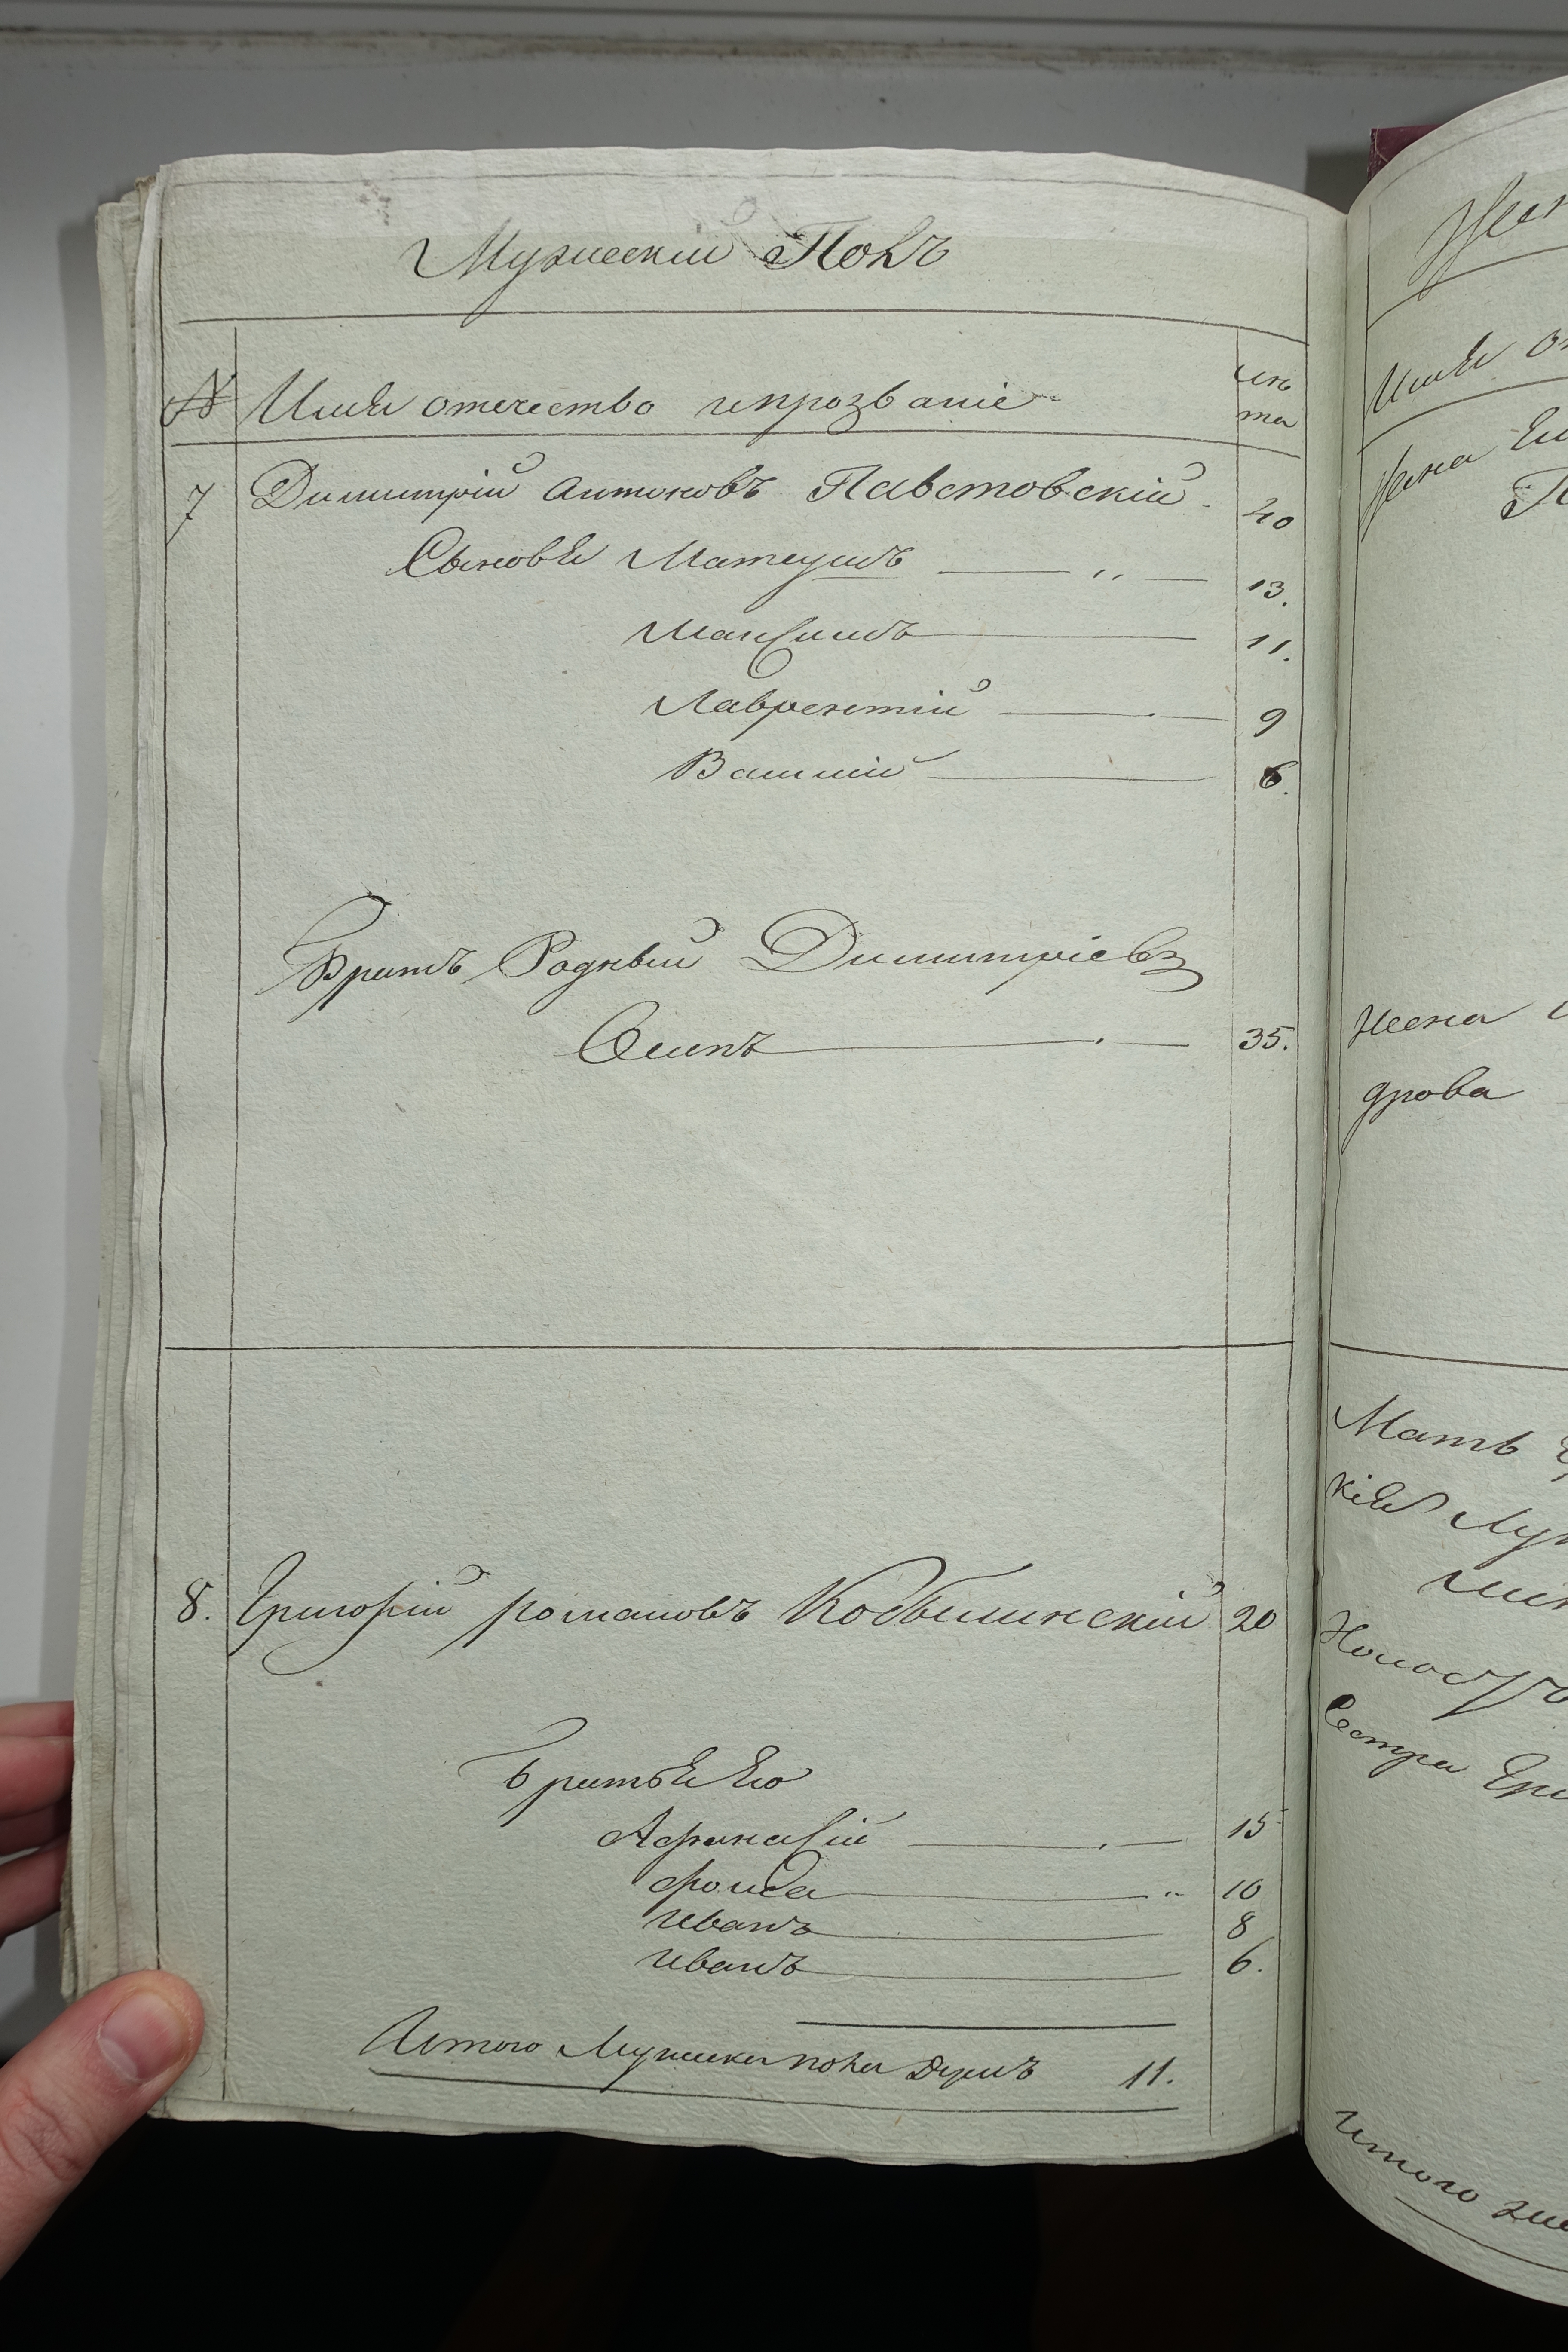 Мужескій Полъ
№ Имя отечество ипрозваніе лѣта
7 Димитрій антоновъ Павстовскій 40
Сыновя Матеушъ 13.
Максимъ 11.
Лаврентій 9
Василій 6.
Братъ Родный Димитріевъ
Осипъ 35.
8. Григорій романовъ Кобылинскій 20
Братья Его
Афанасій 15
фома 10
иванъ 8
иванъ 6.
Итого Мужеска пола Душъ 11.
Имя
Жена
Жена
дрова
Мать
кія
Сестра
итого